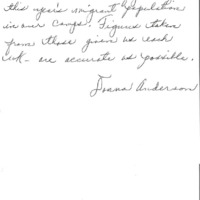 this year's migrant population
in our camps. Figures taken
from those given us each
week - are accurate as possible.
Donna Anderson